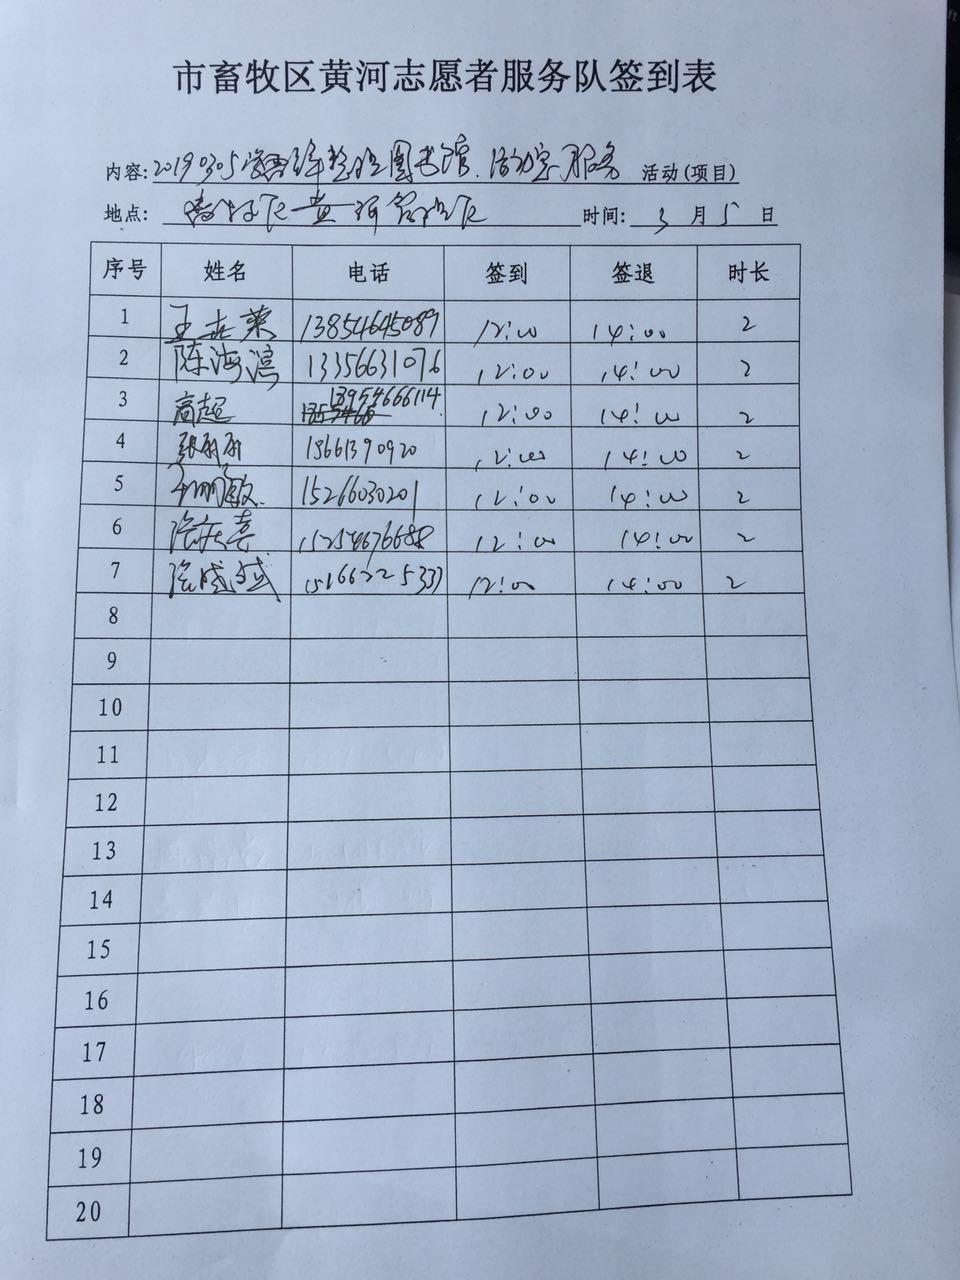 市畜牧区黄河志愿者服务队签到表
内容: 20190305 图书馆、活动室服务 活动(项目)
地点: 畜牧区黄河 时间: 3 月 5 日
序号 姓名 电话 签到 签退 时长
1 王 荣 13854645089 12:00 14:00 2
2 陈海滨 13356631076 12:00 14:00 2
3 高超 13954666114 12:00 14:00 2
4 张丽丽 15661390920 12:00 14:00 2
5 敏 15266030201 12:00 14:00 2
6 喜 15254676688 12:00 14:00 2
7 15166225333 12:00 14:00 2
8
9
10
11
12
13
14
15
16
17
18
19
20